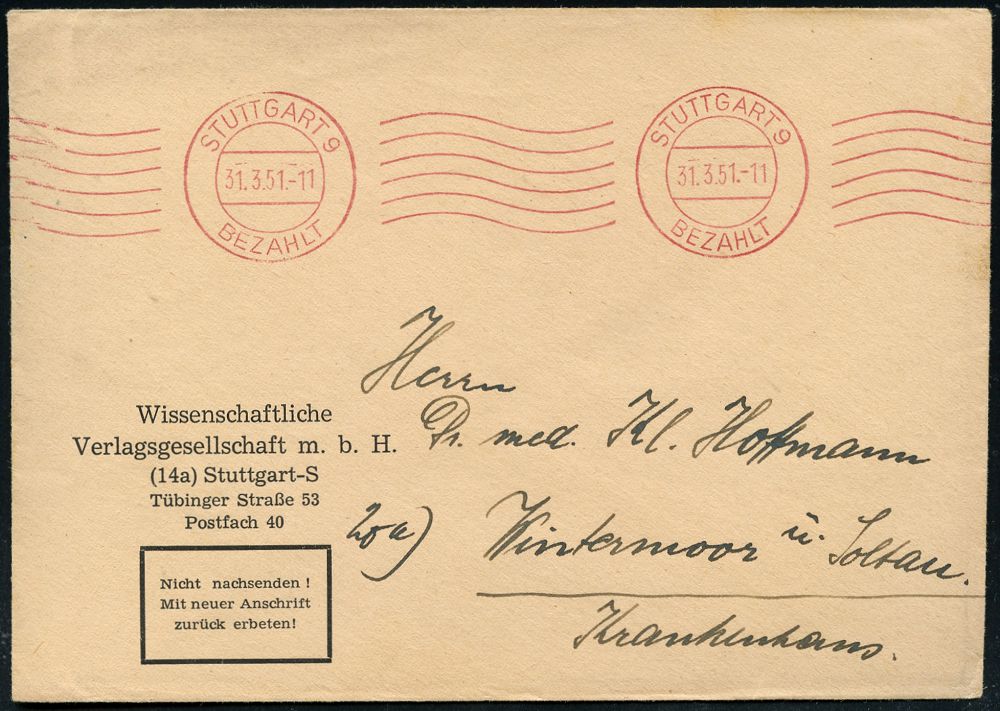 STUTTGART 9
31.3.51.-11
BEZAHLT
STUTTGART 9
31.3.51.-11
BEZAHLT
Wissenschaftliche
Verlagsgesellschaft m. b. H.
(14a) Stuttgart-S
Tübinger Straße 53
Postfach 40
Nicht nachsenden !
Mit neuer Anschrift
zurück erbeten!
Herrn
Dr. med. Kl. Hoffmann
20a) Wintermoor ü. Soltau.
Krankenhaus.